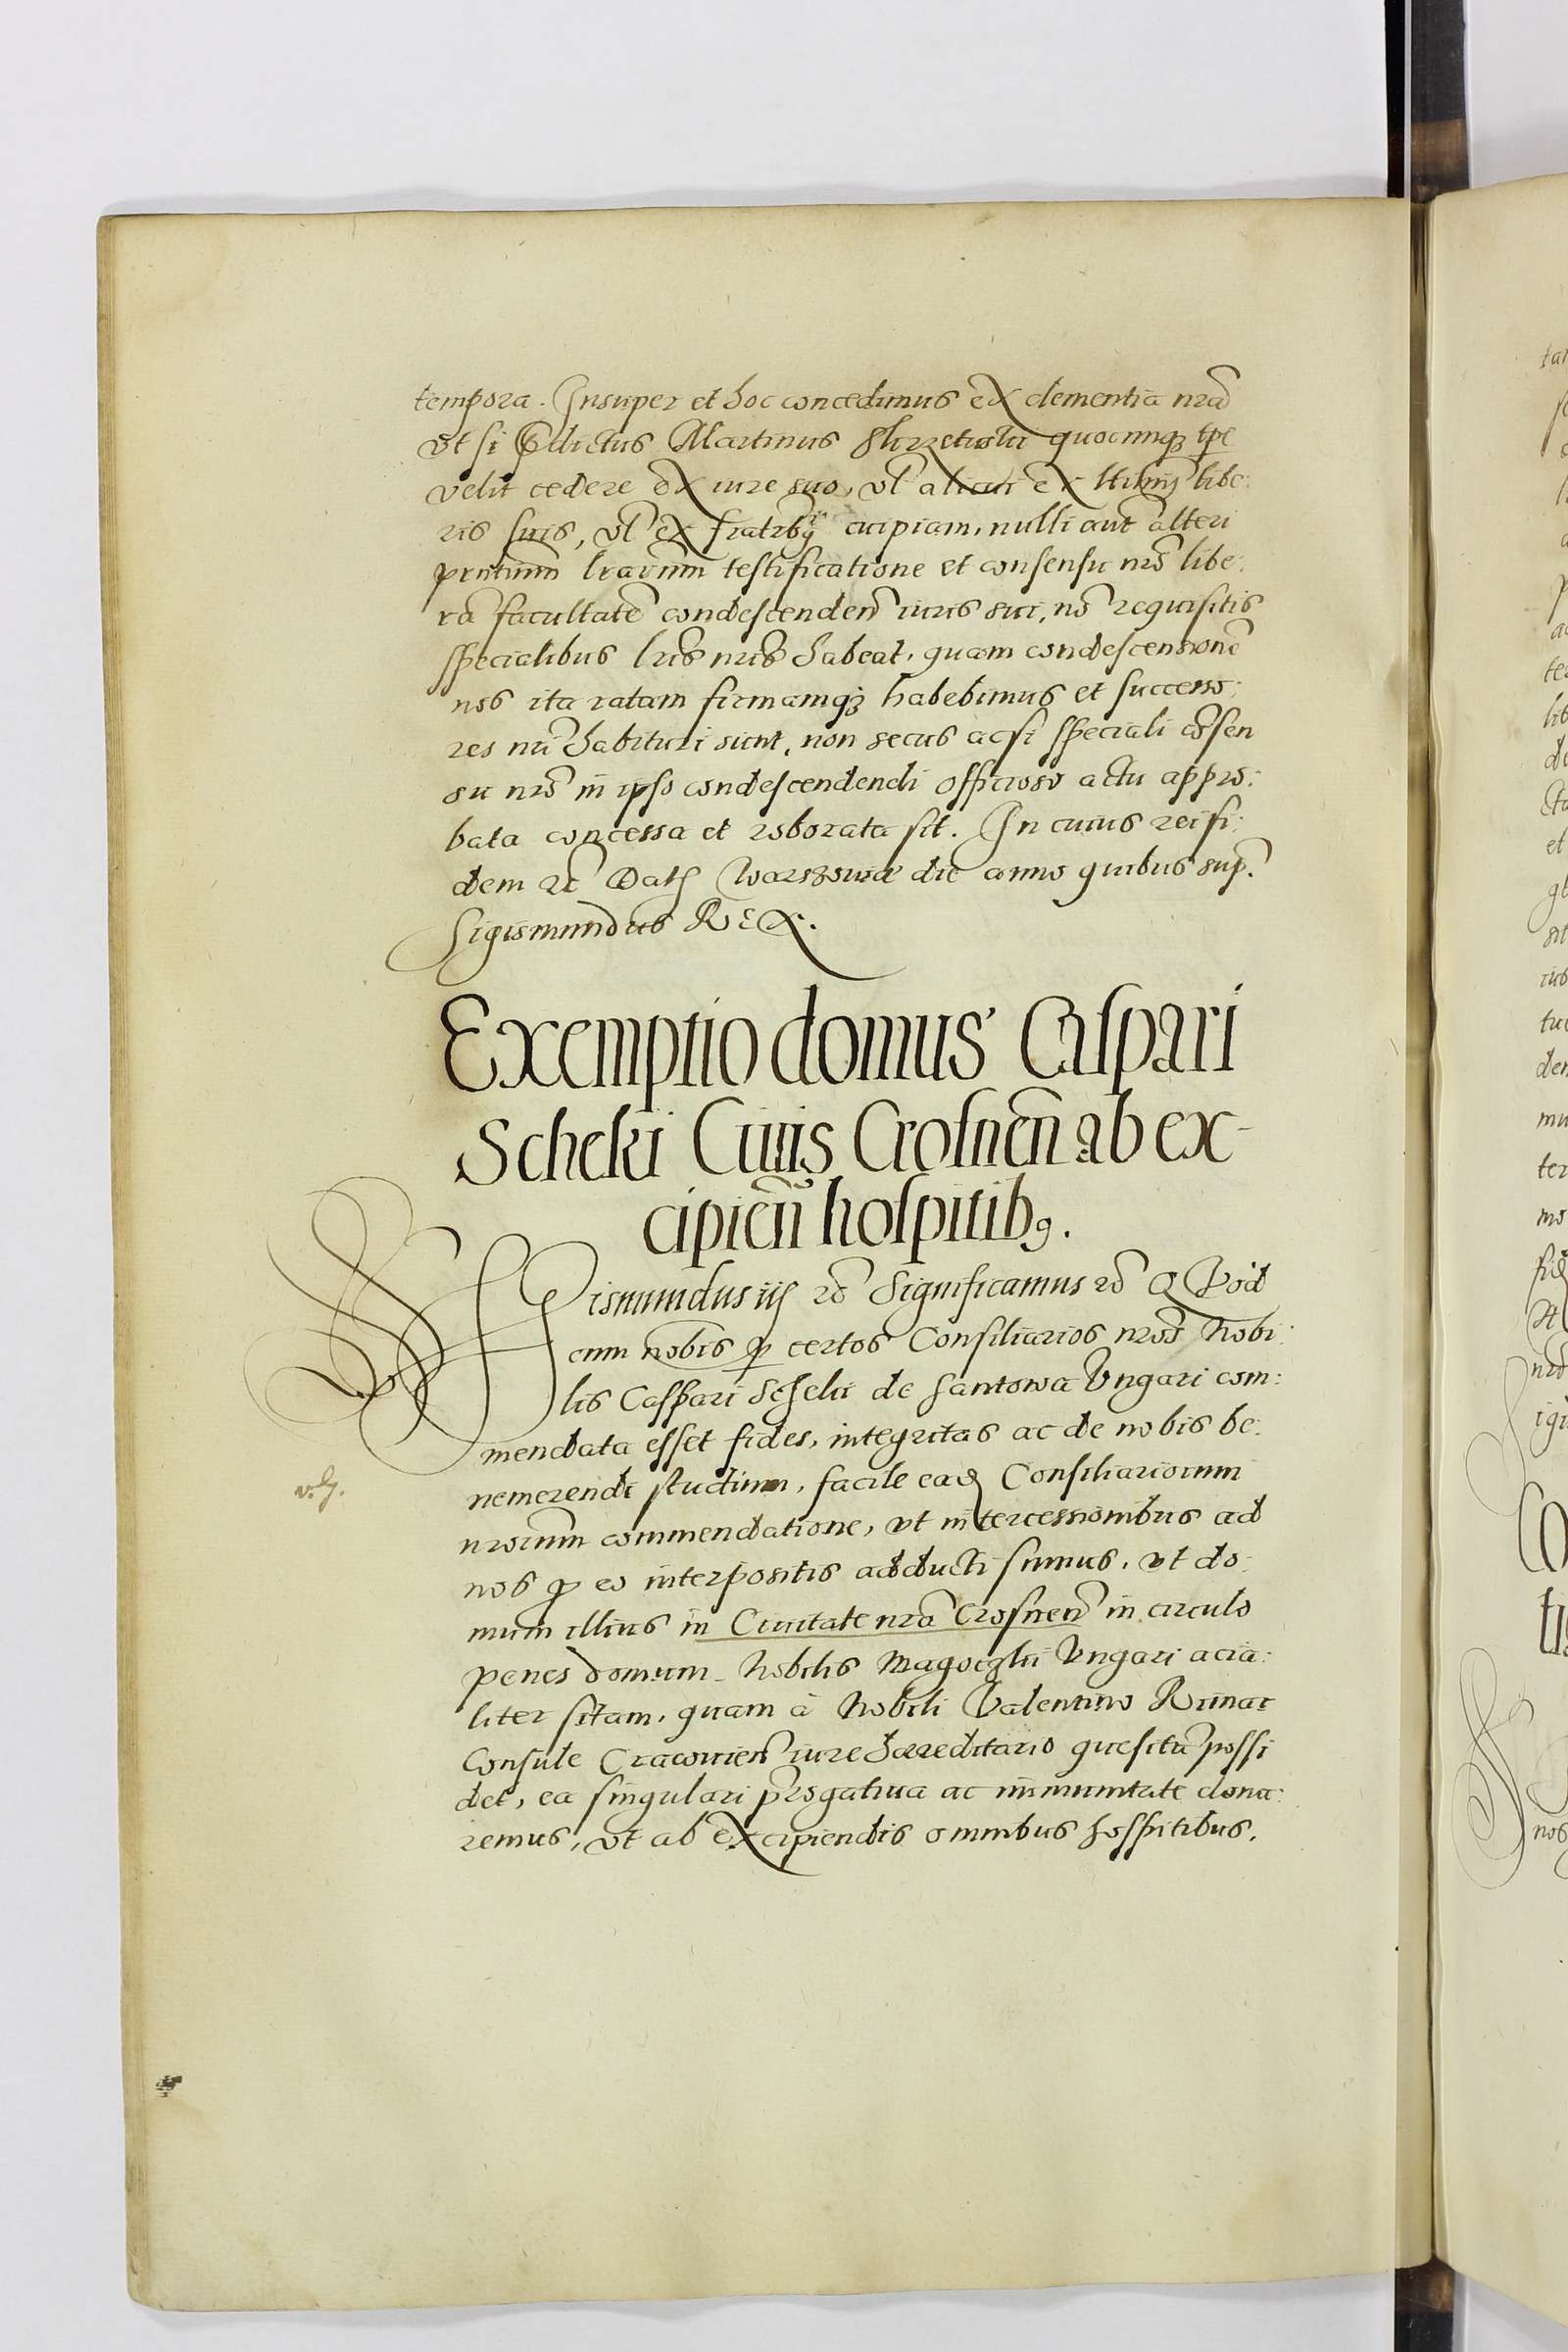 tempora. Insuper et hoc concedimus ex clementia nrã
vt si Martinus quocunq3 tpe
velit cedere ex iure suo, vl alicui ex libe:
ris suis, vl ex cuipiam, nulli aut alteri
prntium lrarum testificatione et consensu nro libe:
rã facultatẽ condescendeñ iuris sui, nõ requisitis
specialibus lris nris habeat, quam condescensionẽ
nos ita ratam firmamq3 habebimus et successo:
res nri habituri sunt, non secus acsi speciali cõsen
su nro in ipso condescendendi officioso actu appro:
bata concessa et roborata sit. In cuius rei fi:
dem Warszowiæ die anno quibus sup.
Sigismundus REX.
Exemptio domus Caspari
Scheki Ciuis Crosneñ ab ex-
cipieñ hospitib9.
Sigismundus Significamus QVod
cum nobis certos Consiliarios nros Nobi:
lis Caspari de Santowa Vngari com:
mendata esset fides, integritas ac de nobis be:
nemerendi studium, facile Consiliariorum
nrorum commendatione, vt intercessionibus ad
nos eo interpositis adducti sumus, vt do:
mum illius in Ciuitate nrã Crosneñ in circulo
penes domum Nobilis Vngari acia:
liter sitam, quam à Nobili Valentino
Consule Cracouieñ iure hæreditario quesitã possi
det, ea singulari prrogatiua ac immunitate dona:
remus, vt ab excipiendis omnibus hospitibus,